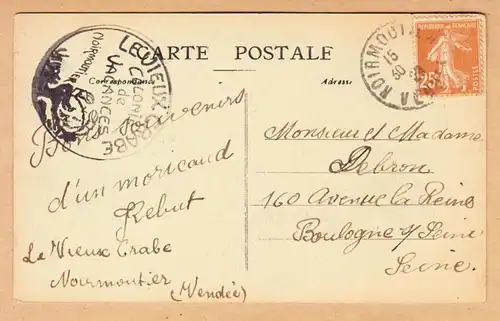 CARTE POSTALE
Correspondance
Adresse
LE VIEUX CRABE
COLONIE
de
VACANCES
NOIRMOUTIER
NOIRMOUTI
15
30
VEN
REPUBLIQUE FRANCAISE
25c
Bons souvenirs
d'un moricaud
Rebut
Le Vieux Crabe
Noirmoutier
(Vendée)
Monsieur et Madame
Debron
160 Avenue la Reine
Boulogne s/ Seine
Seine.